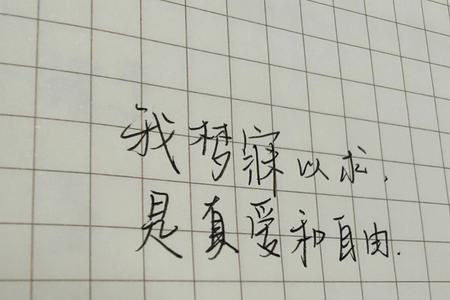 我梦寐以求,
是真爱和自由.